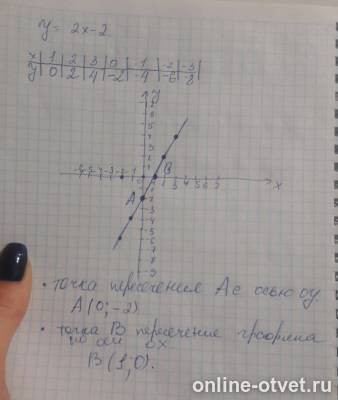 y = 2x-2
x | 1 | 2 | 3 | 0 | -1 | -2 | -3 |
y | 0 | 2 | 4 | -2 | -4 | -6 | -8 |
y
B
x
A
• точка пересечения A с осью oy
A (0; -2)
• точка B пересечение графика
по оси ox
B (1; 0).
online-otvet.ru